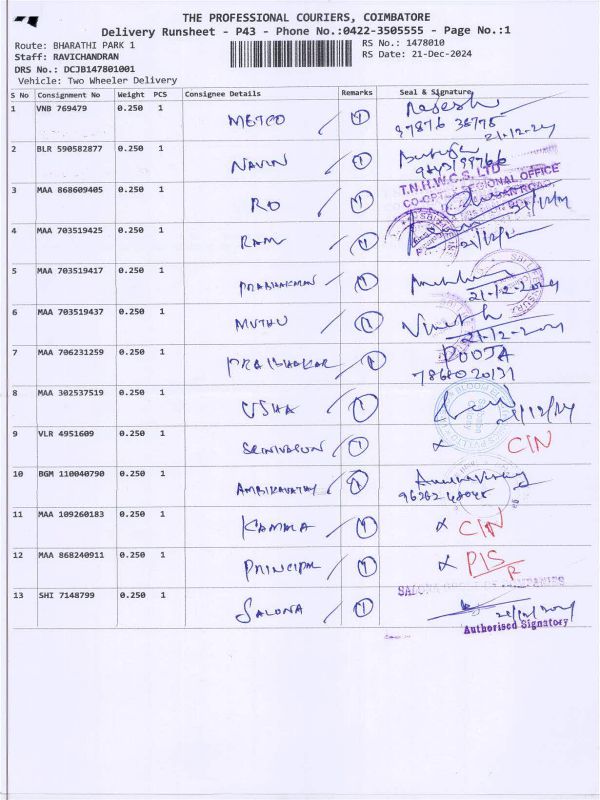 THE PROFESSIONAL COURIERS, COIMBATORE
Delivery Runsheet - P43 - Phone No.:0422-3505555 - Page No.:1
Route: BHARATHI PARK 1
RS No.: 1478010
Staff: RAVICHANDRAN
RS Date: 21-Dec-2024
DRS No.: DCJB147801001
Vehicle: Two Wheeler Delivery
S No Consignment No Weight PCS Consignee Details Remarks Seal & Signature
1 VNB 769479 0.250 1 METCO 1 Rajesh
21-12-24
2 BLR 590582877 0.250 1 NAVIN 1
T.N.H.W.C.S. LTD
CO-OPTEX REGIONAL OFFICE
3 MAA 868609405 0.250 1 RO 1
4 MAA 703519425 0.250 1 RAM 1
5 MAA 703519417 0.250 1 PRABHAKARAN 1
21-12-2024
6 MAA 703519437 0.250 1 MUTHU 1
21-12-2024
7 MAA 706231259 0.250 1 PRABHAKAR 1 POOJA
8 MAA 302537519 0.250 1 USHA 1 21/12/24
9 VLR 4951609 0.250 1 SRINIVASAN 1 x CIN
10 BGM 110040790 0.250 1 AMBIKAVATHY 1
11 MAA 109260183 0.250 1 KAMALA 1 x CIN
12 MAA 868240911 0.250 1 PRINCIPAL 1 x PIS
R
13 SHI 7148799 0.250 1 SALONA 1
Authorised Signatory